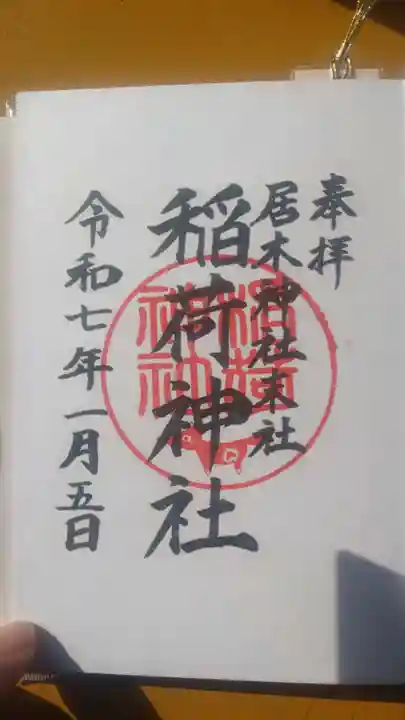 奉拝
居木神社末社
稲荷神社
令和七年一月五日
稲荷
神社